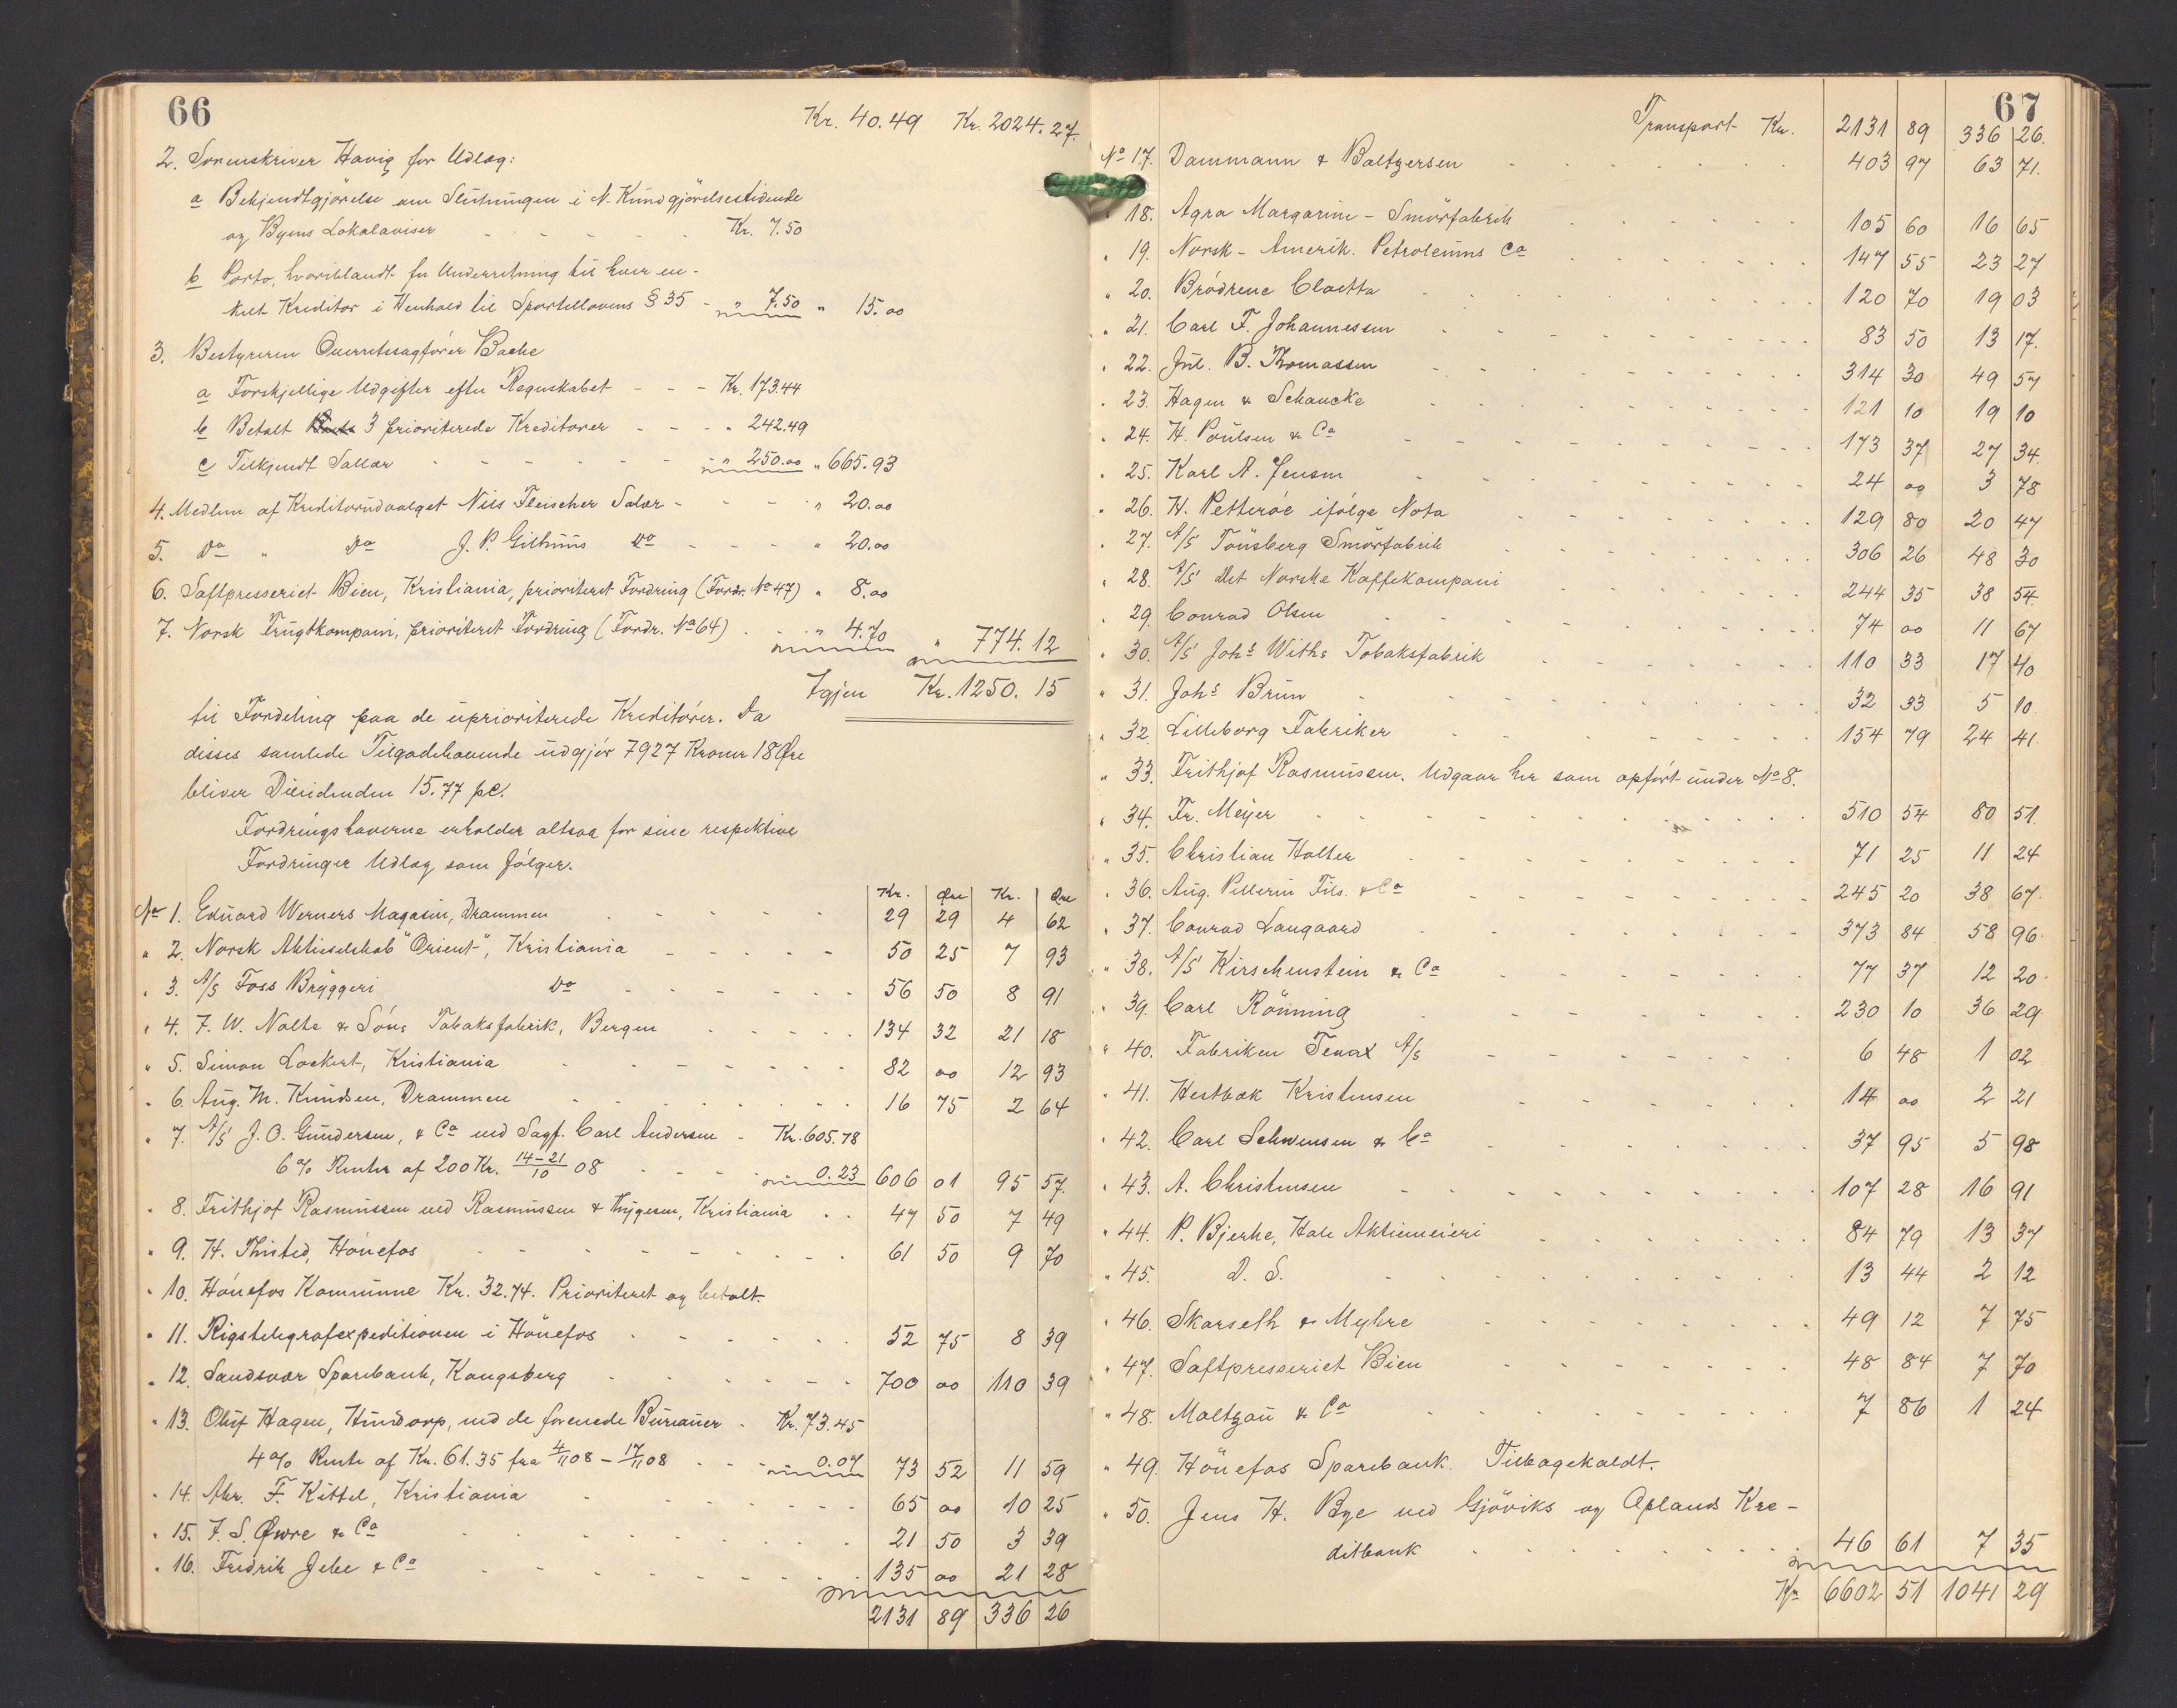 66
Kr. 40.49 Kr. 2024.27.
2. Sorenskriver Havig for Udlæg:
a Bekjendtgjörelse om Slutningen i N. Kundgjörelsestidende
og Byens Lokalaviser - - - - - Kr. 7.50
b Porto, hvoriblandt for Underretning til hver en-
kelt Kreditor i Henhold til Sportellovens § 35 - " 7.50 " 15.00
3. Bestyreren Overretssagförer Bache
a Forskjellige Udgifter efter Regnskabet - - - Kr. 173.44
b Betalt 3 prioriterede Kreditorer - - - " 242.49
c Tilkjendt Sallær - - - - - - " 250.00 " 665.93
4. Medlem af Kreditorudvalget Nils Fleischer Salær - - - - " 20.00
5. Do " Do J. P. Gilhuus Do - - - - " 20.00
6. Saftpresseriet Bien, Kristiania, prioriteret Fordring (Fordr. No 47) " 8.00
7. Norsk Frugtkompani, prioriteret Fordring (Fordr. No 64) - - " 4.70 " 774.12
Igjen Kr. 1250.15
til Fordeling paa de uprioriterede Kreditorer. Da
disses samlede Tilgodehavende udgjör 7927 Kroner 18 Øre
bliver Dividenden 15.77 pc.
Fordringshaverne erholder altsaa for sine respektive
Fordringer Udlæg som fölger.
Kr. Øre Kr. Øre
No 1. Eduard Werners Magasin, Drammen 29 29 4 62
" 2. Norsk Aktieselskab "Orient", Kristiania 50 25 7 93
" 3. A/S Foss Bryggeri Do 56 50 8 91
" 4. F. W. Nolte & Söns Tobaksfabrik, Bergen 134 32 21 18
" 5. Simon Lockert, Kristiania 82 00 12 93
" 6. Aug. M. Knudsen, Drammen 16 75 2 64
" 7. A/S J. O. Gundersen, & Co ved Sagf. Carl Andersen - Kr. 605.78
6% Renter af 200 Kr. 14-21/10 08 0.23 606 01 95 57.
" 8. Frithjof Rasmussen ved Rasmussen & Thygesen, Kristiania 47 50 7 49
" 9. H. Thisted, Hönefos 61 50 9 70
" 10. Hönefos Kommune Kr. 32.74. Prioriteret og betalt.
" 11. Rigstelegrafexpeditionen i Hönefos 52 75 8 39
" 12. Sandsvær Sparebank, Kongsberg 700 00 110 39
" 13. Oluf Hagen, Hundorp, ved de forenede Bureauer - Kr. 73.45
4% Rente af Kr. 61.35 fra 4/11 08 - 17/11 08 0.07 73 52 11 59
" 14. Abr. F. Kittel, Kristiania 65 00 10 25
" 15. F. S. Øwre & Co 21 50 3 39
" 16. Fredrik Jebe & Co 135 00 21 28
2131 89 336 26
67
Transport Kr. 2131 89 336 26.
No 17. Dammann & Baltzersen 403 97 63 71.
" 18. Agra Margarin - Smörfabrik 105 60 16 65
" 19. Norsk - Amerik. Petroleums Co 147 55 23 27
" 20. Brödrene Cloetta 120 70 19 03
" 21. Carl F. Johannessen 83 50 13 17.
" 22. Jul. B. Thomassen 314 30 49 57
" 23. Hagen & Schancke 121 10 19 10
" 24. H. Poulsen & Co 173 37 27 34.
" 25. Karl A. Jensen 24 00 3 78
" 26. H. Petteröe ifölge Nota 129 80 20 47
" 27. A/S Tönsberg Smörfabrik 306 26 48 30
" 28. A/S Det Norske Kaffekompani 244 35 38 54.
" 29. Conrad Olsen 74 00 11 67
" 30. A/S Johs Withs Tobaksfabrik 110 33 17 40
" 31. Johs Brun 32 33 5 10
" 32. Lilleborg Fabriker 154 79 24 41
" 33. Frithjof Rasmussen. Udgaar her som opfört under No 8.
" 34. Fr. Meyer 510 54 80 51.
" 35. Christian Holter 71 25 11 24
" 36. Aug. Pellerin Fils. & Co 245 20 38 67.
" 37. Conrad Langaard 373 84 58 96.
" 38. A/S Kirschenstein & Co 77 37 12 20.
" 39. Carl Rönning 230 10 36 29.
" 40. Fabriken Tenax A/S 6 48 1 02
" 41. Hestbæk Kristensen 14 00 2 21
" 42. Carl Schwensen & Co 37 95 5 98
" 43. A. Christensen 107 28 16 91
" 44. P. Bjerke, Hole Aktiemeieri 84 79 13 37
" 45. D. S. 13 44 2 12
" 46. Skarseth & Myhre 49 12 7 75
" 47. Saftpresseriet Bien 48 84 7 70
" 48. Maltzau & Co 7 86 1 24
" 49. Hönefos Sparebank. Tilbagekaldt.
" 50. Jens H. Bye ved Gjöviks og Oplands Kre-
ditbank 46 61 7 35
Kr 6602 51 1041 29